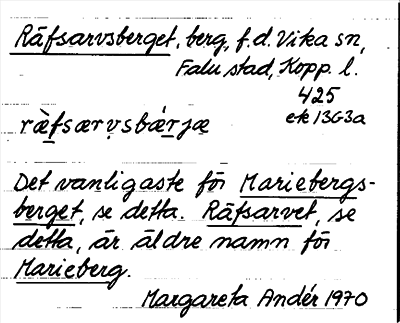 Räfsarvsberget, berg, f.d. Vika sn,
Falu stad, Kopp. l.
425
ek 13G3a
ræ̀fsærv̥sbǽrjæ
Det vanligaste för Mariebergs-
berget, se detta. Räfsarvet, se
detta, är äldre namn för
Marieberg.
Margareta Andér 1970